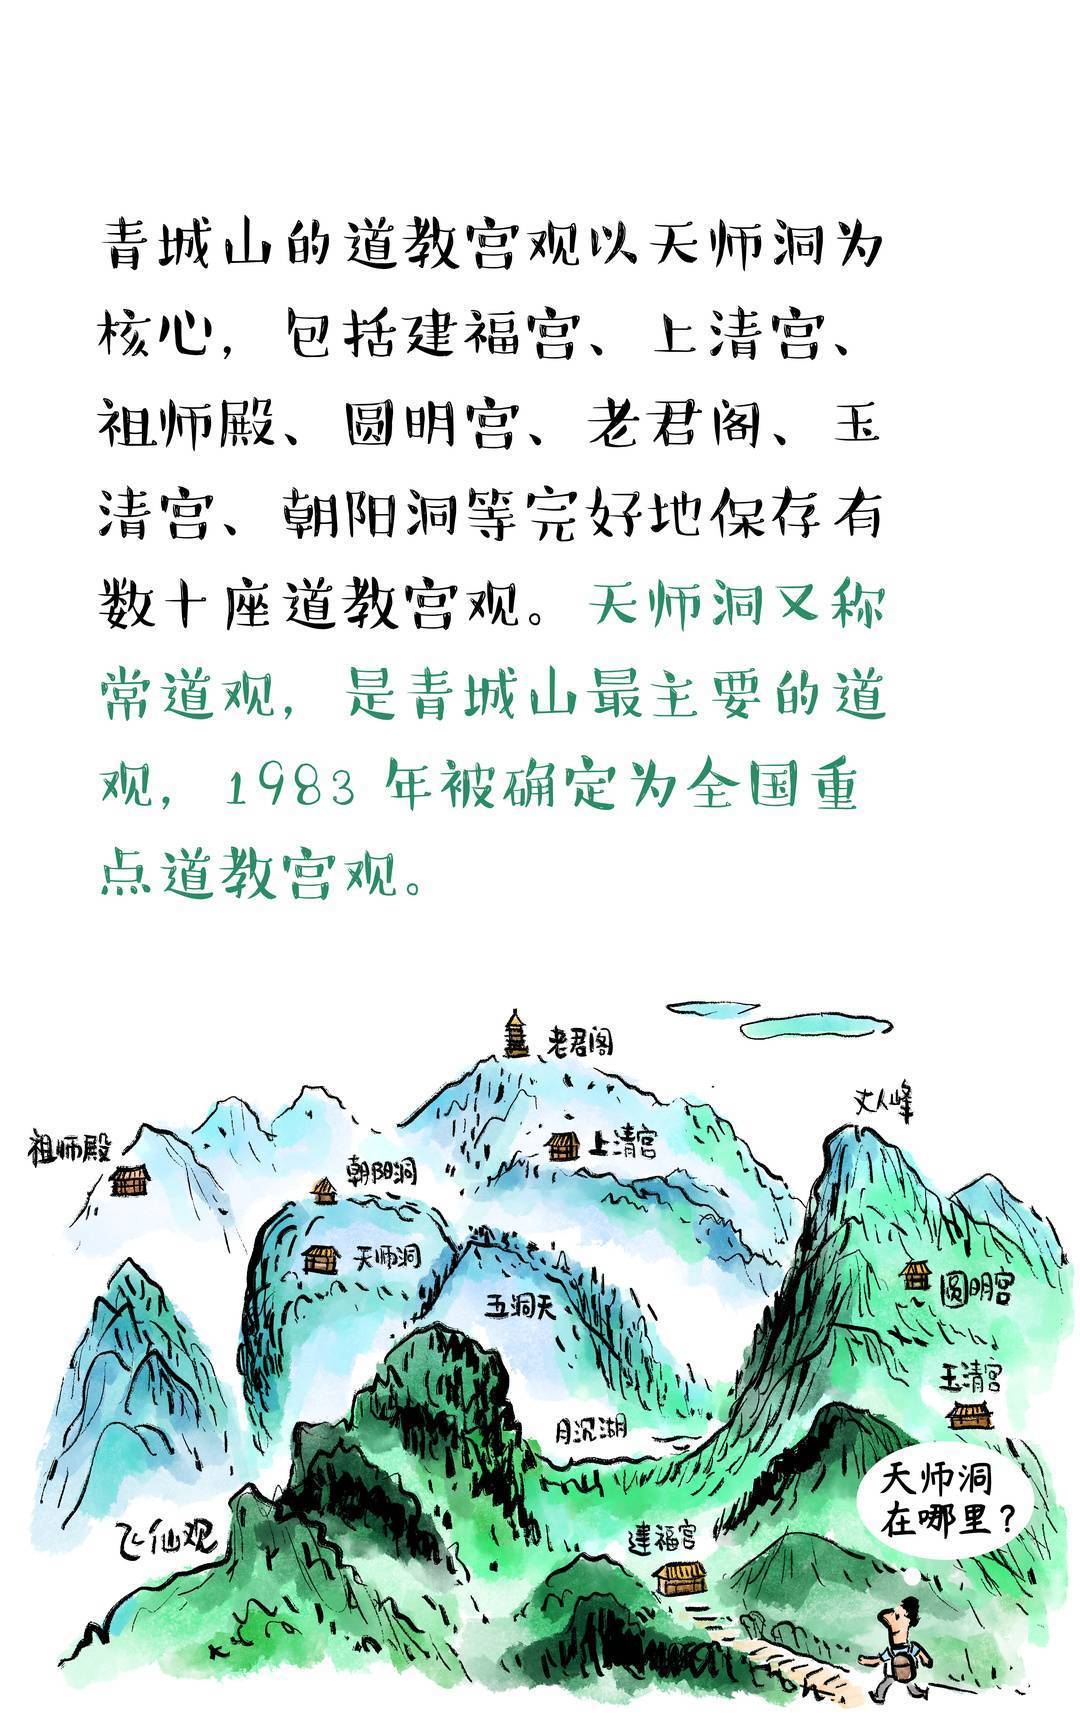 青城山的道教宫观以天师洞为
核心，包括建福宫、上清宫、
祖师殿、圆明宫、老君阁、玉
清宫、朝阳洞等完好地保存有
数十座道教宫观。天师洞又称
常道观，是青城山最主要的道
观，1983 年被确定为全国重
点道教宫观。
老君阁
丈人峰
祖师殿
上清宫
朝阳洞
天师洞
圆明宫
五洞天
玉清宫
月沉湖
天师洞
在哪里？
飞仙观
建福宫